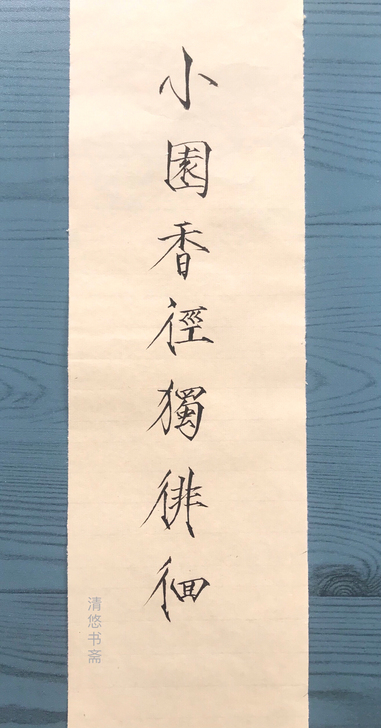 小園香徑獨徘徊
清悠书斋